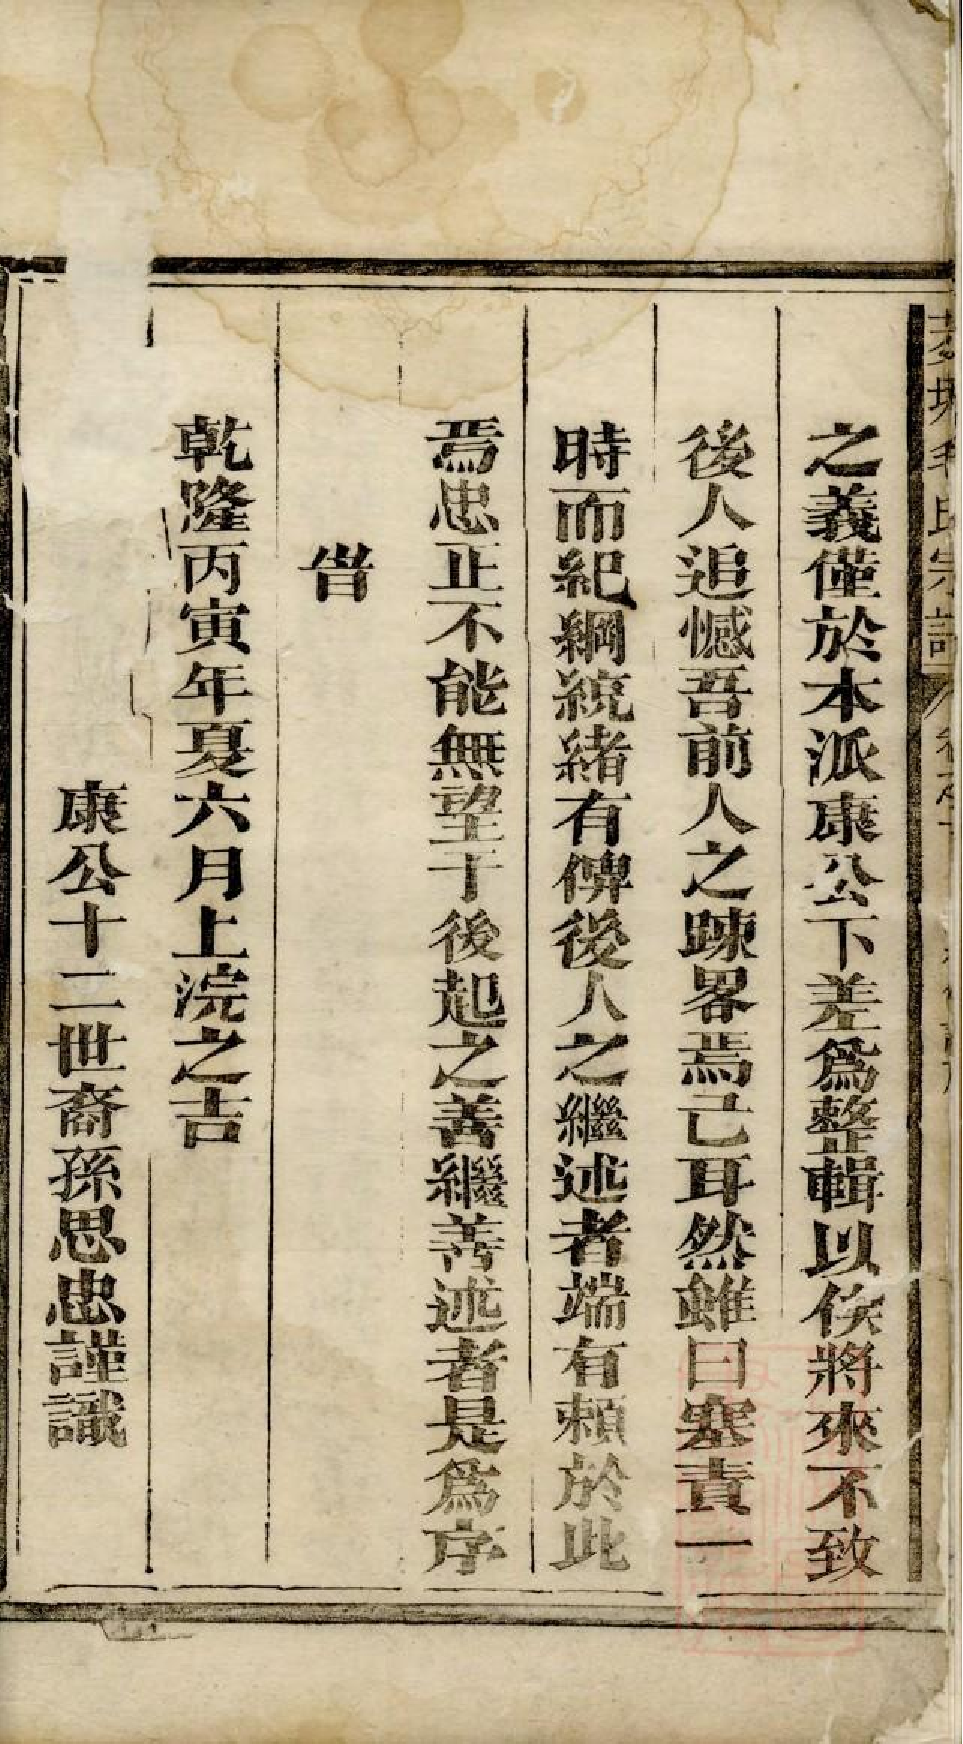 之義僅於本派康公下差為整輯以俟將來不致
後人追憾吾前人之踈畧焉已耳然雖曰塞責一
時而紀綱統緒有俾後人之繼述者端有賴於此
焉忠正不能無望于後起之善繼善述者是為序
旹
乾隆丙寅年夏六月上浣之吉
康公十二世裔孫思忠謹識